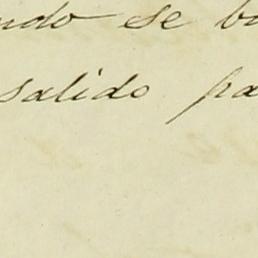 ndo se b
salido pa